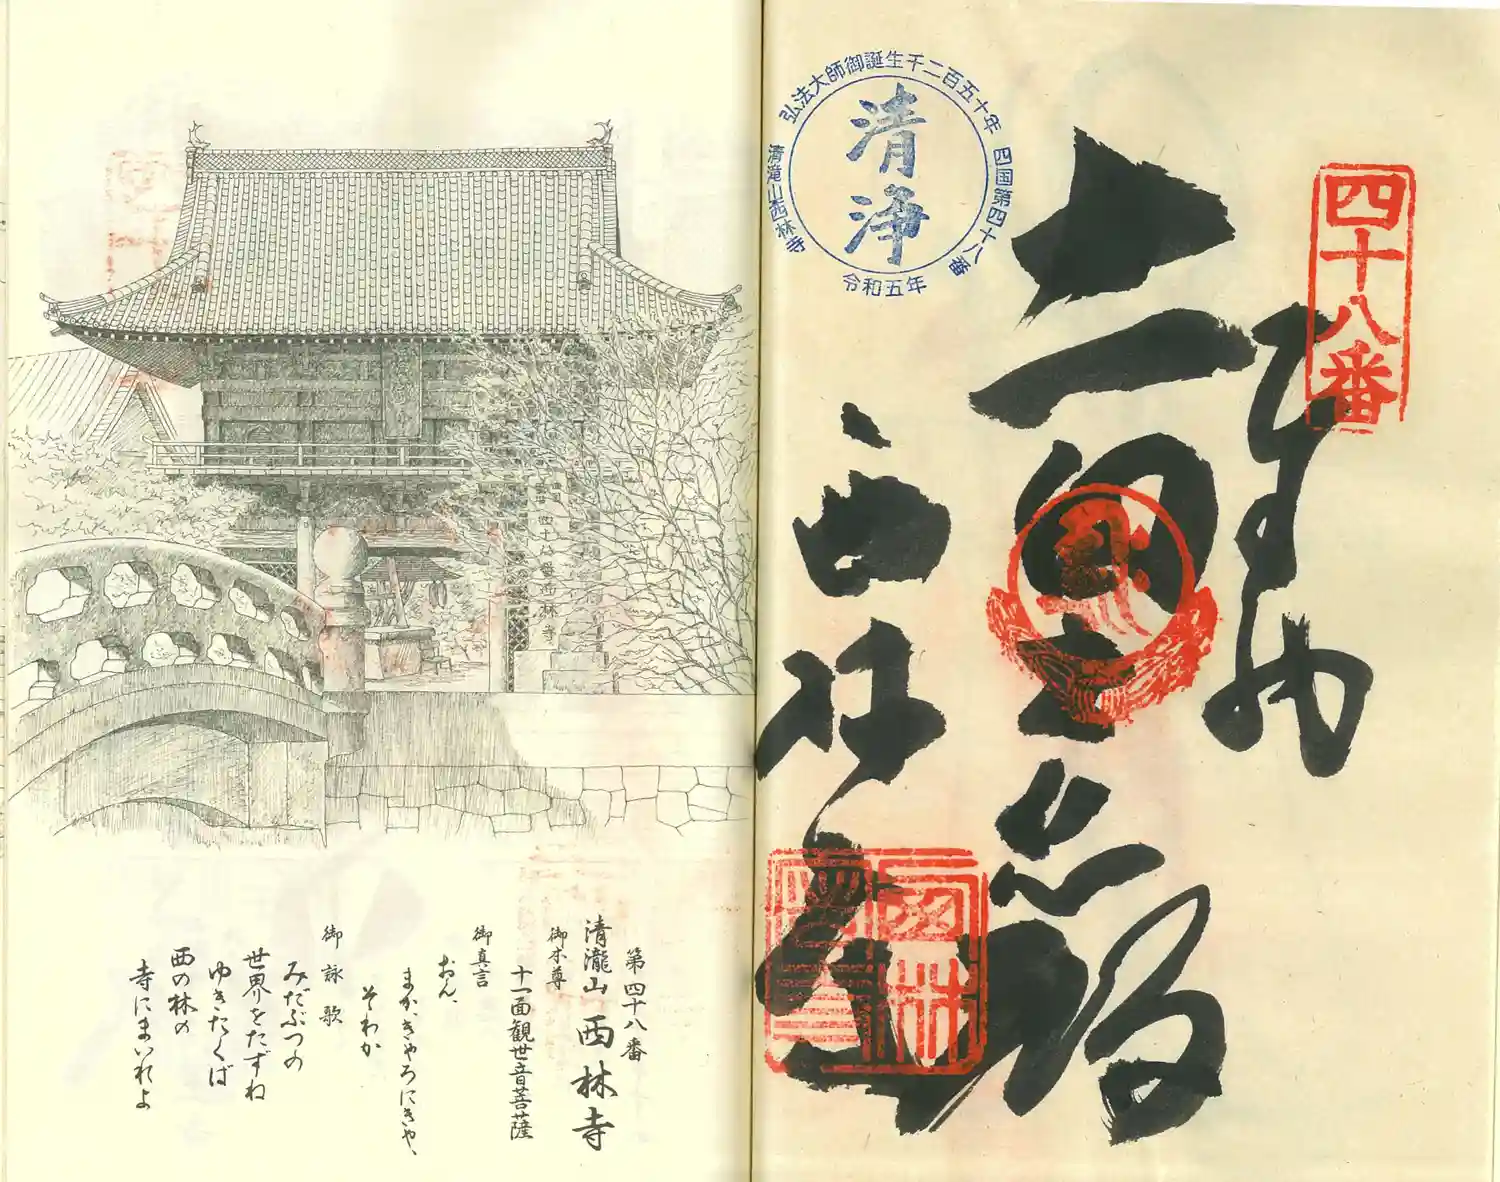 四十八番
奉納
弘法大師御誕生千二百五十年
四国第四十八番
清滝山西林寺
令和五年
清浄
西林寺
四国第四十八番西林寺
第四十八番
清瀧山 西林寺
御本尊
十一面観世音菩薩
御真言
おん、
まか、きゃろにきゃ、
そわか
御詠歌
みだぶつの
世界をたずね
ゆきたくば
西の林の
寺にまいれよ